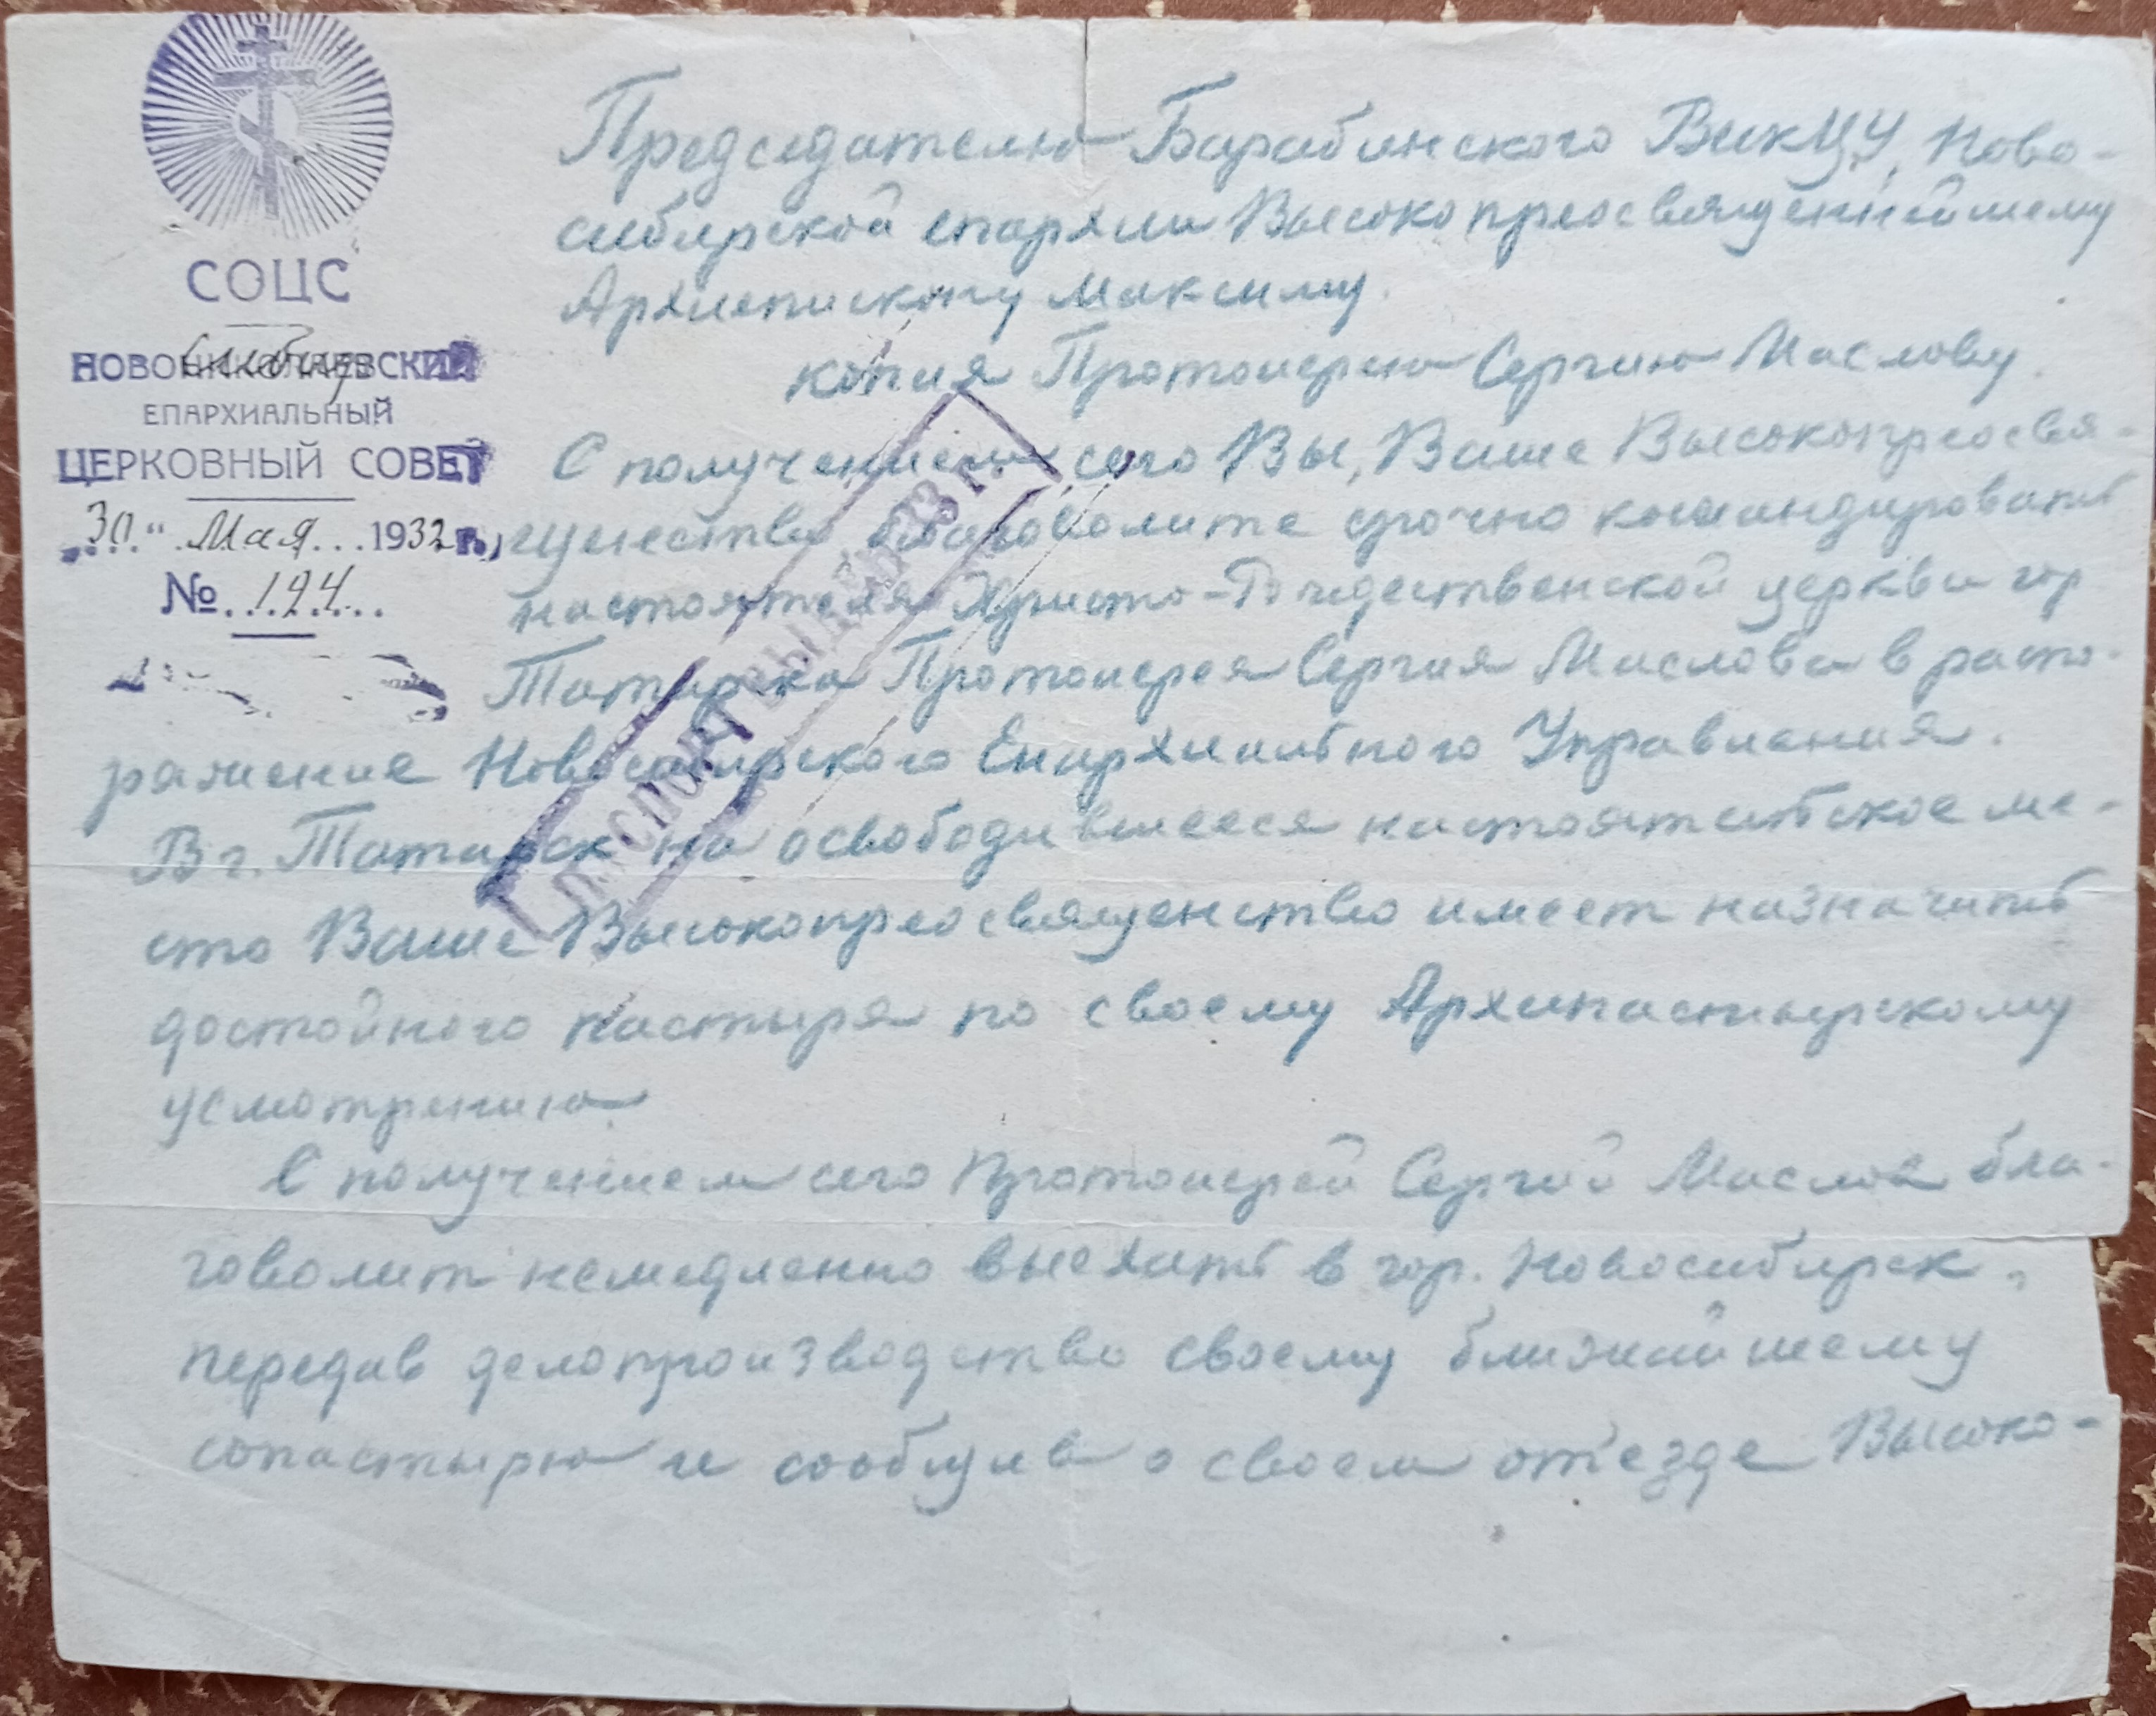 СОЦС
НОВОНИКОЛАЕВСКИЙ
сибир
ЕПАРХИАЛЬНЫЙ
ЦЕРКОВНЫЙ СОВЕТ
"30" Мая 1932 г.,
№ 194
Председателю Барабинского ВикЦУ, Ново-
сибирской епархии Высокопреосвященнейшему
Архиепископу Максиму.
копия Протоиерею Сергию Маслову.
С получением сего Вы, Ваше Высокопреосвя-
щенство благоволите срочно командировать
настоятеля Христо-Рождественской церкви гор
Татарска Протоиерея Сергия Маслова в распо-
ряжение Новосибирского Епархиального Управления.
В г. Татарск на освободившееся настоятельское ме-
сто Ваше Высокопреосвященство имеет назначить
достойного пастыря по своему Архипастырскому
усмотрению.
С получением сего Протоиерей Сергий Маслов бла-
говолит немедленно выехать в гор. Новосибирск,
передав делопроизводство своему ближайшему
сопастырю и сообщив о своем от'езде Высоко-
ПАСПОРТ ВЫДАН 193 г.